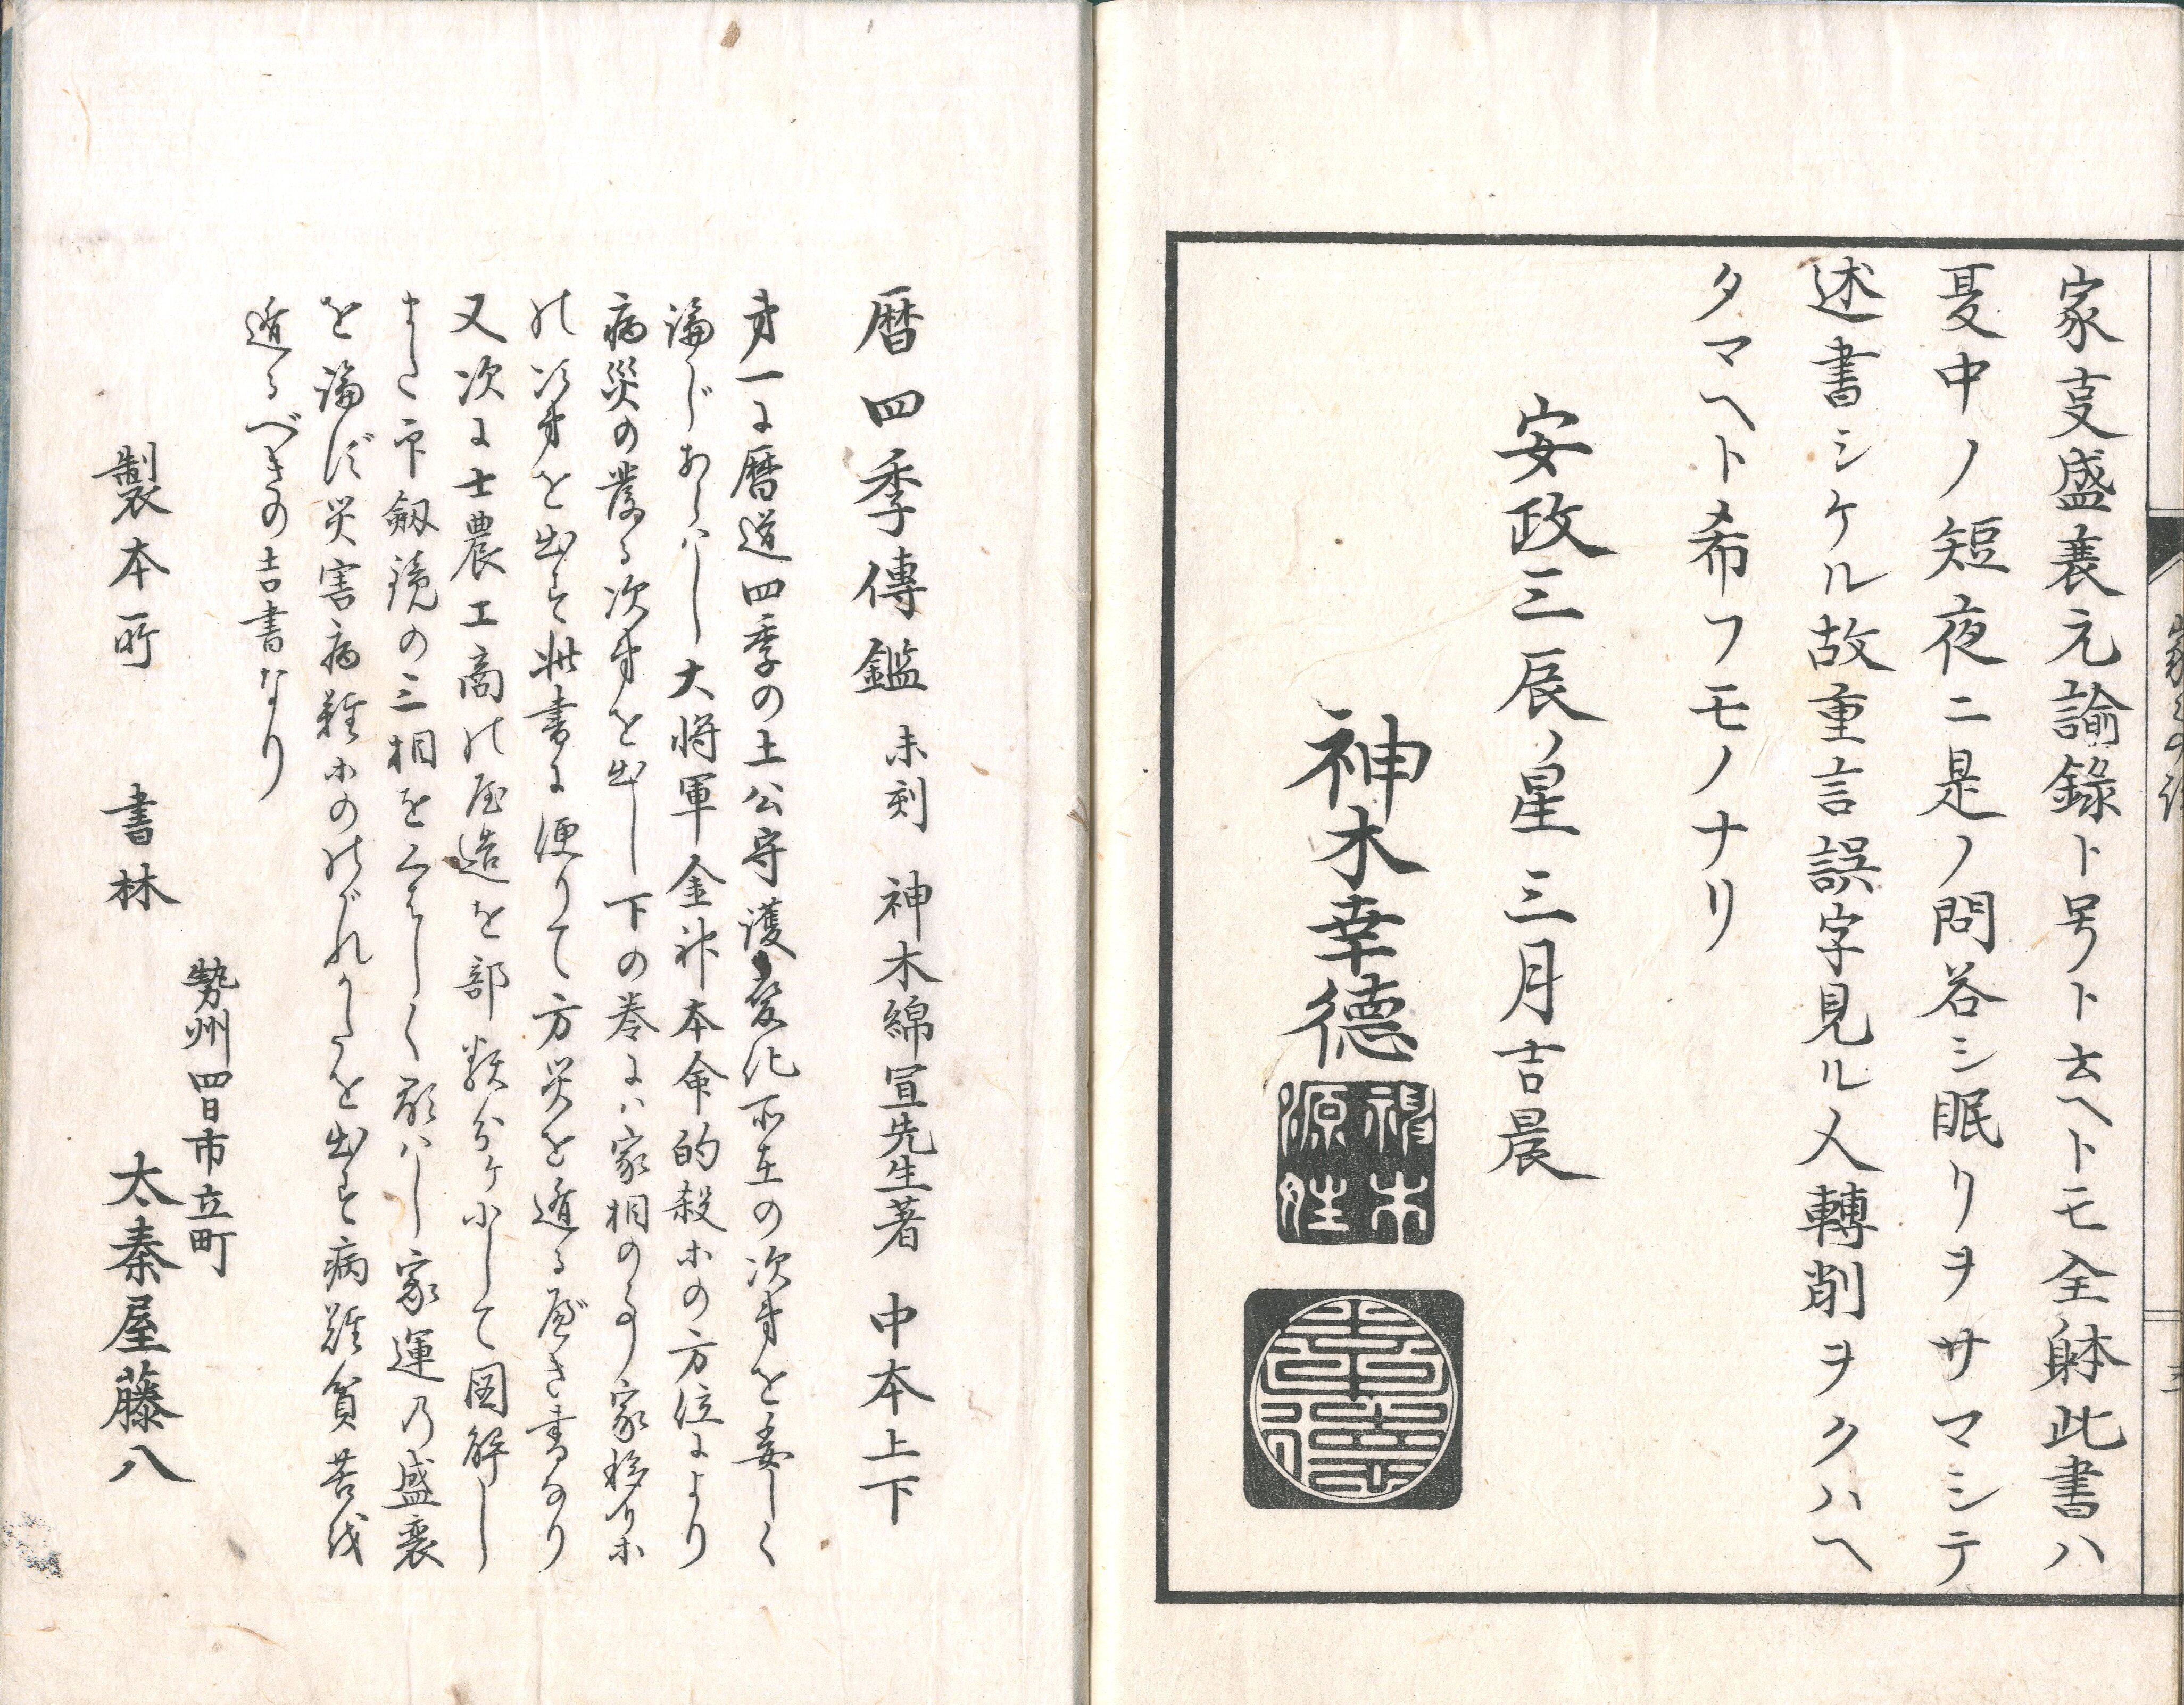 家㕝盛衰元諭錄ト号ト云ヘトモ全躰此書ハ
夏中ノ短夜ニ是ノ問答シ眠リヲサマシテ
述書シケル故重言誤字見ル人轉削ヲクハヘ
タマヘト希フモノナリ
安政三辰ノ星三月吉晨
神木幸德
神木源姓
幸德
暦四季傳鑑 未刻 神木綿宣先生著 中本上下
㐧一に暦道四季の土公守護変化所在の次㐧を委しく
論じあらハし大将軍金神本命的殺ホの方位により
病災の発る次㐧を出し下の巻にハ家相の事家移りホ
の次㐧を出す此書に便りて方災を遁る應き書なり
又次に士農工商の屋造を部類分ケにして図解し
また印剱鏡の三相をくはしく顕ハし家運乃盛衰
を論ず災害病難ホのがれかたを出す病難貧苦を
遁るべきの吉書なり
製本所 書林
勢州四日市立町
太秦屋藤八